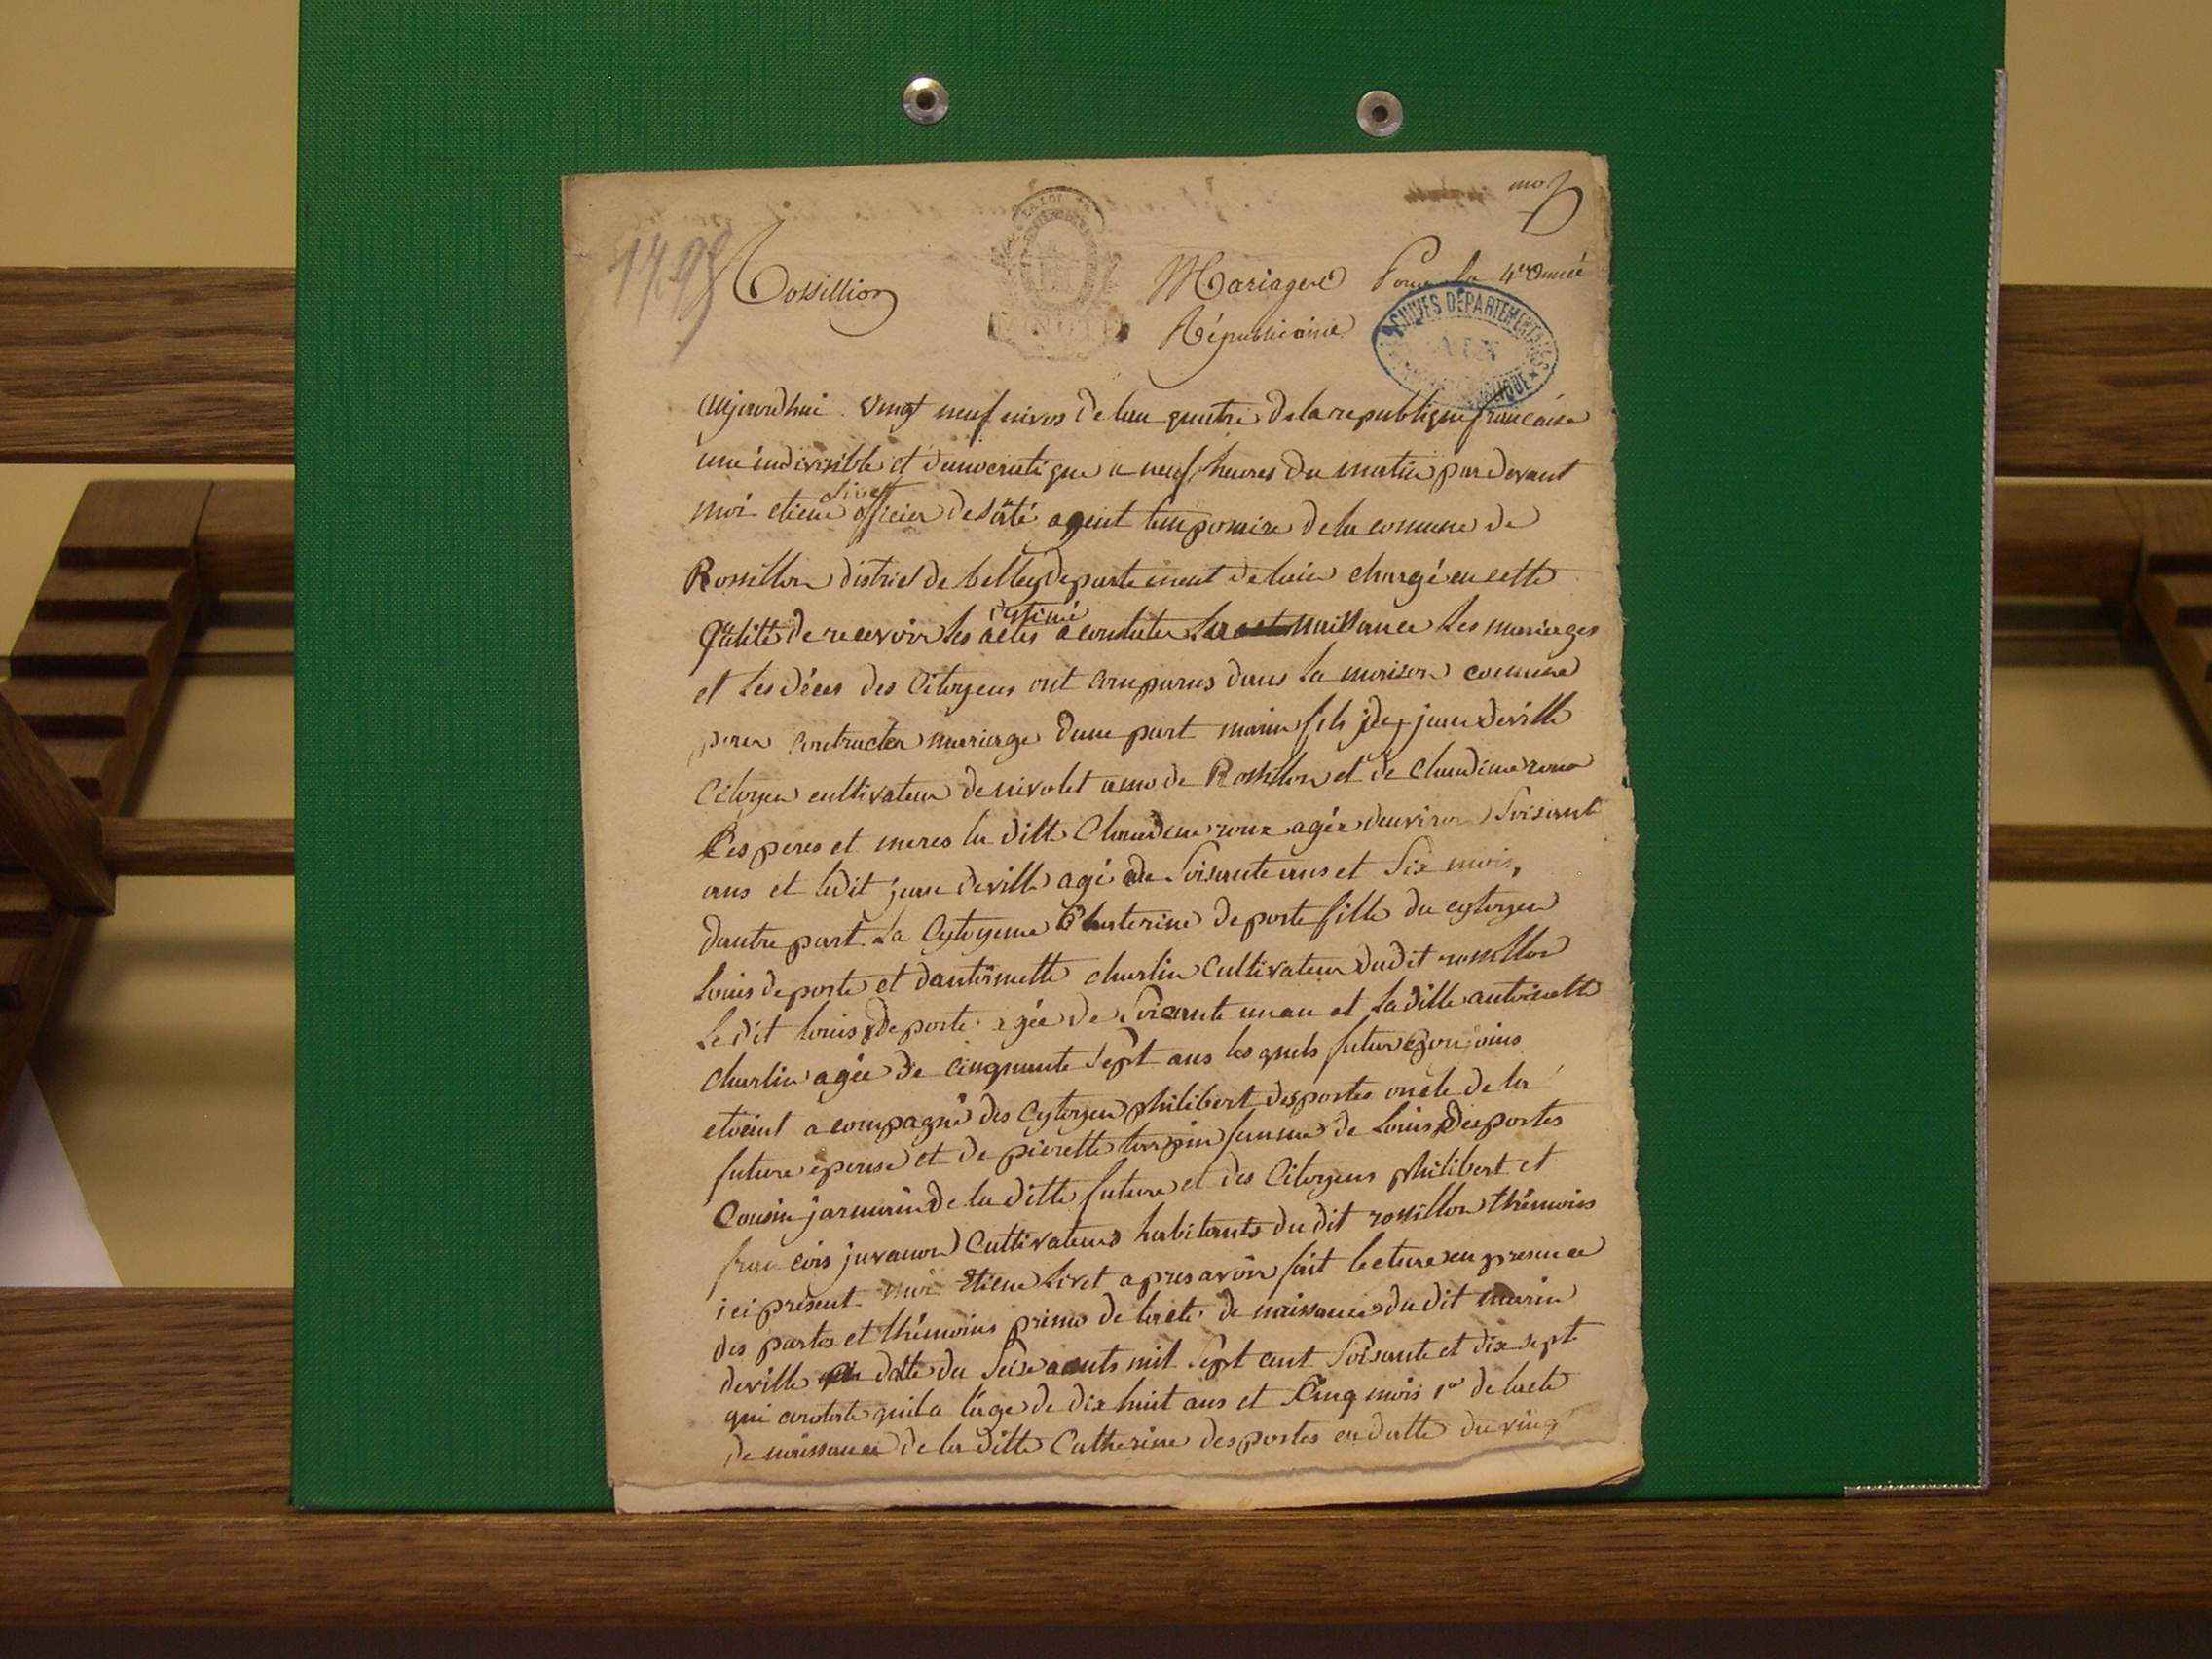 1795
Rossillion
Mariages Pour la 4e année
Républicaine
LA LOI
ARCHIVES DÉPARTEMENTALES
AIN
aujourdhui vingt neuf nivos de lan quatre de la republique francaise
une indivisible et democratique a neuf heures du matin par devant
moi etiene livet officier de santé agent temporaire de la comune de
Rossillon district de belley departement de lain chargé en cette
qualité de recevoir les actes destiné a constater naissance les mariages
et les déces des Citoyens ont comparus dans la maison comune
pour contracter mariage dune part marin fils de jean deville
Citoyen cultivateur de nivolet de Rossillon et de Claudine roux
Ces peres et meres la ditte Claudine roux agée denviron soisante
ans et ledit jean deville agé de soisante ans et six mois,
dautre part La Cytoyene Catterine deporte fille du cytoyen
Louis deporte et dantoinette charlin Cultivateur dudit rossillon
Le dit louis deporte agée de soisante un an et la ditte antoinette
charlin agée de cinquante sept ans les quels futurs conjoins
etoient acompagné des Cytoyen philibert desportes oncle de la
future épouse et de pierette femme de Louis desportes
Cousin jarmain de la ditte future et des Citoyens philibert et
francois juvanon Cultivateurs habitants du dit rossillon thémoins
ici présent moi Etiene Livet apres avoir fait lecture en presence
des partes et thémoins primo de lacte de naissance du dit marin
deville datte du seise aouts mil sept cent soisante et dix sept
qui constate quil a l'age de dix huit ans et Cinq mois 1o de lacte
de naissance de la ditte Catherine desportes en datte du ving